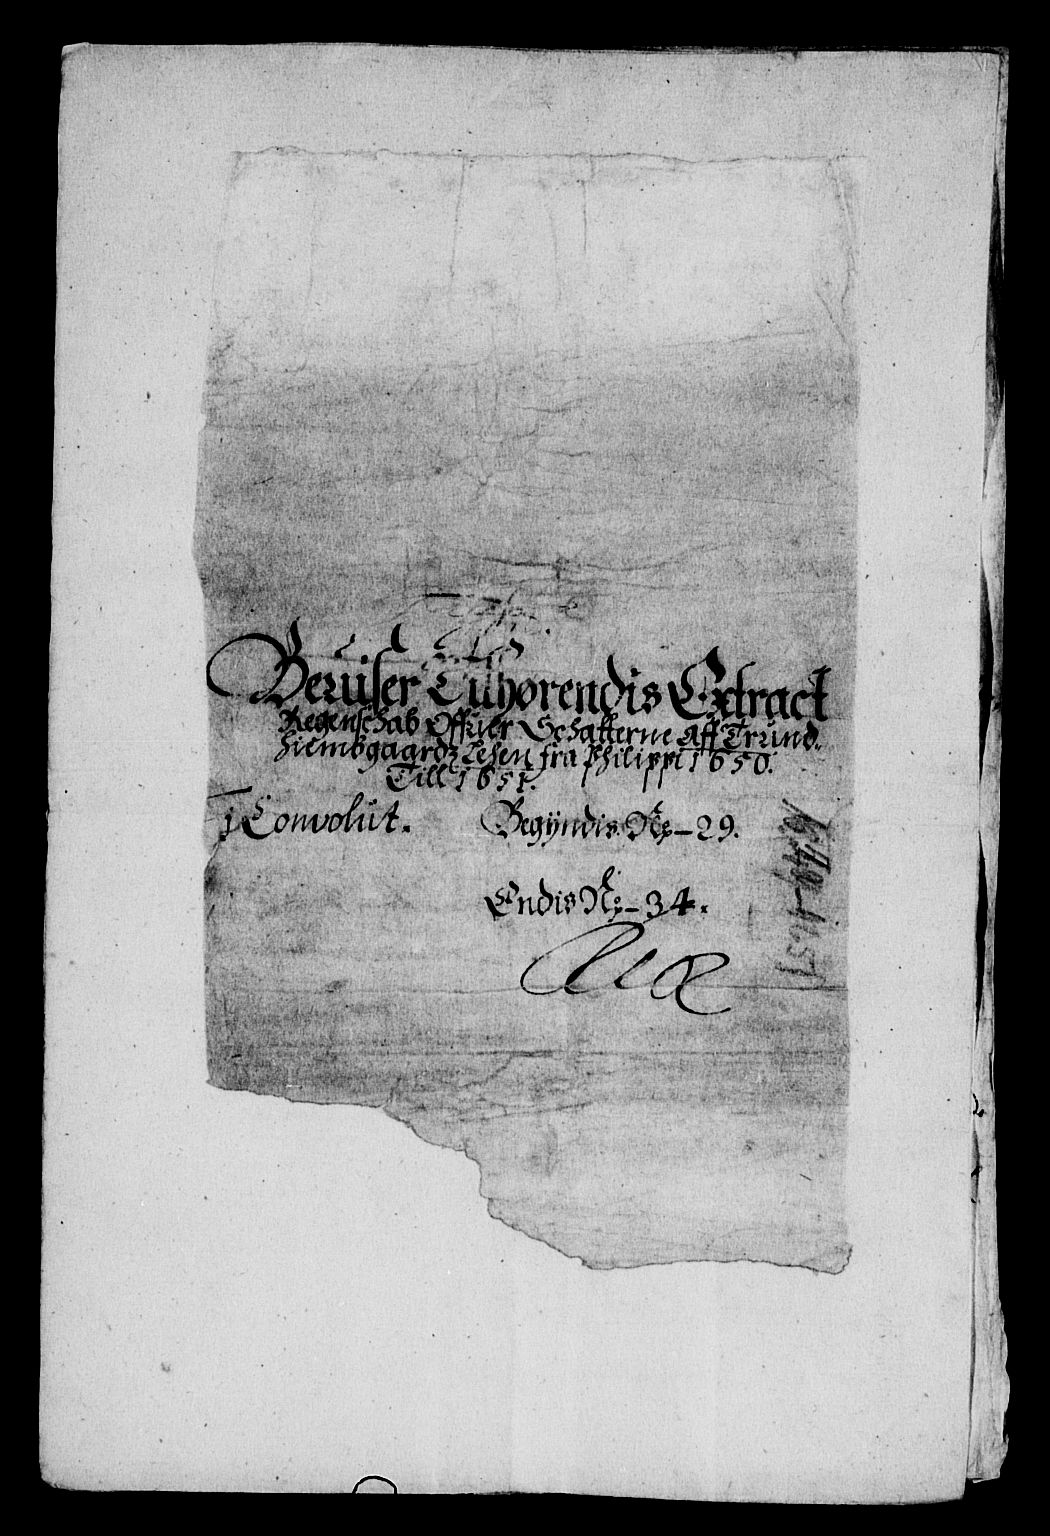 Beviser Tilhørendis Extract
Regenschab Offuer Schatterne Aff Trund-
hiembgaardz Lehen fra Philippi 1650.
Till 1651.
j Convolut. Begÿndis Nr - 29.
Endis Nr - 34.